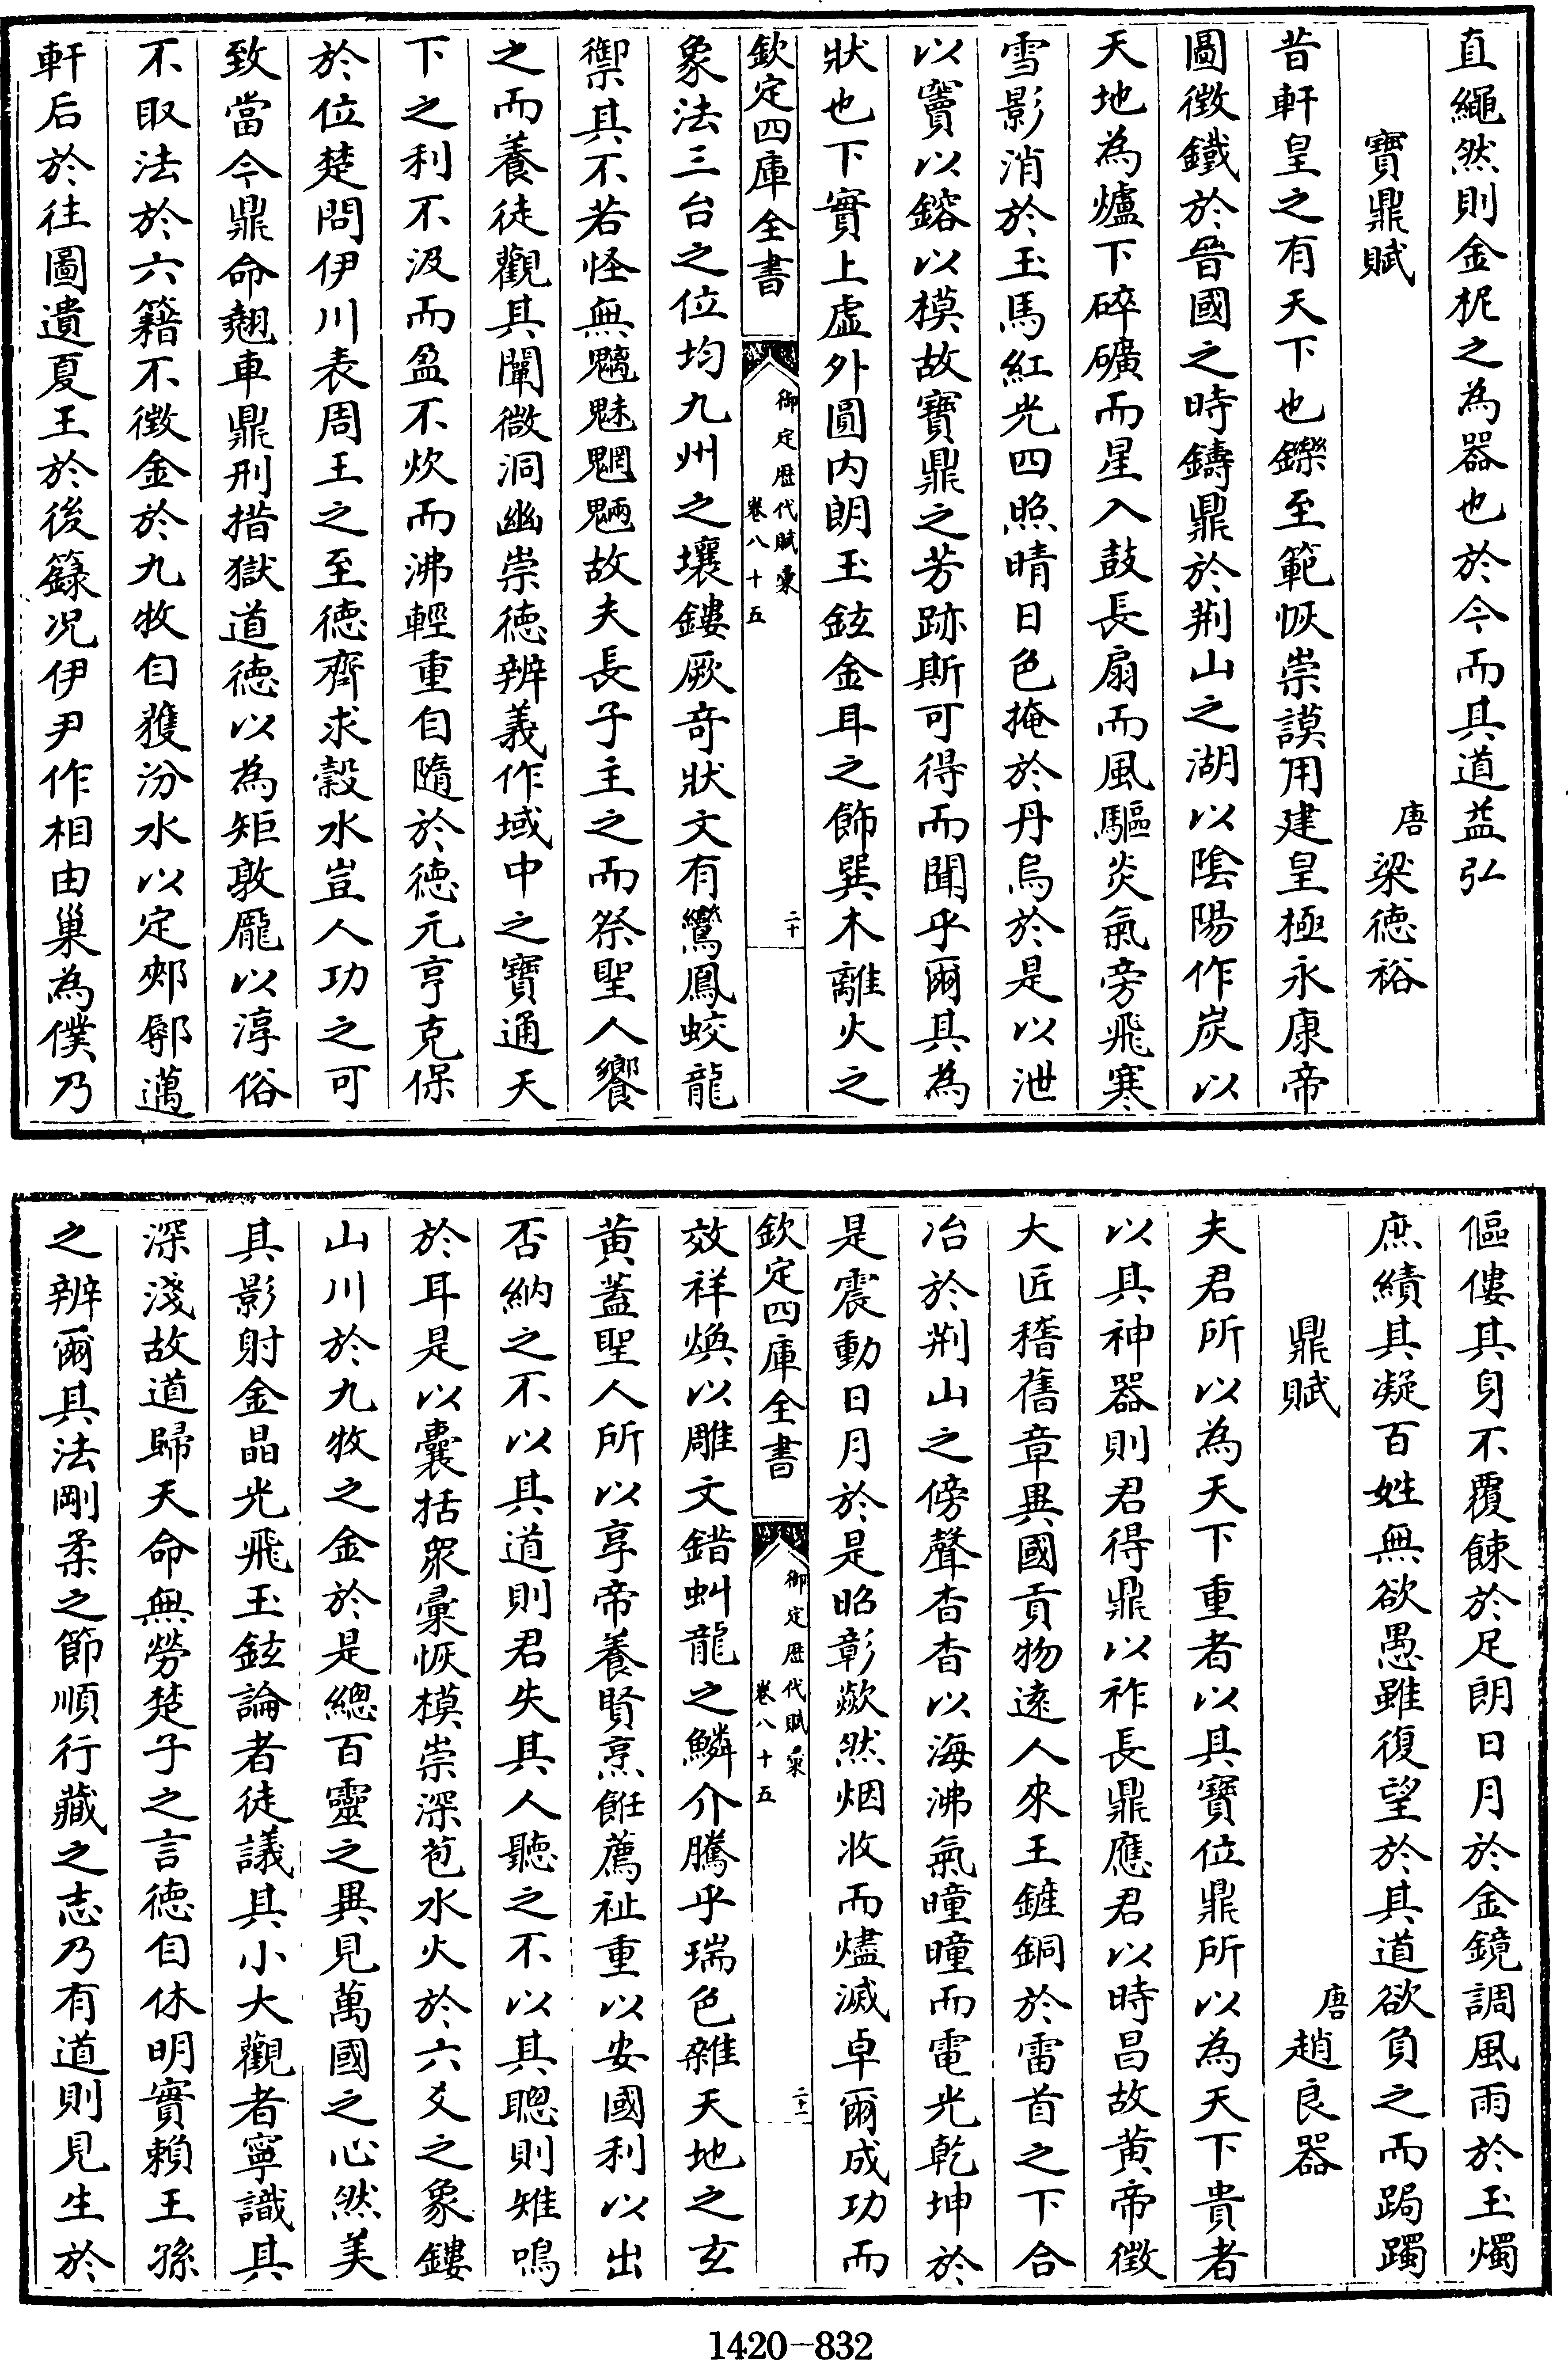 直繩然則金柅之為器也於今而其道益弘
寶鼎賦
唐 梁徳裕
昔軒皇之有天下也鑠至範恢崇謨用建皇極永康帝
圖徴鐵於晉國之時鑄鼎於荆山之湖以陰陽作炭以
天地為爐下碎礦而星入鼓長扇而風驅炎氣旁飛寒
雪影消於玉馬紅光四照晴日色掩於丹烏於是以泄
以竇以鎔以模故寶鼎之芳跡斯可得而聞乎爾其為
狀也下實上虛外圓内朗玉鉉金耳之飾巽木離火之
欽定四庫全書
御定歴代賦彚
卷八十五
二十
象法三台之位均九州之壤鏤厥奇狀文有鸞鳳蛟龍
禦其不若怪無魑魅魍魎故夫長子主之而祭聖人饗
之而養徒觀其闡微洞幽崇徳辨義作域中之寶通天
下之利不汲而盈不炊而沸輕重自隨於徳元亨克保
於位楚問伊川表周王之至徳齊求穀水豈人功之可
致當今鼎命翹車鼎刑措獄道徳以為矩敦厖以淳俗
不取法於六籍不徴金於九牧自獲汾水以定郟鄏邁
軒后於往圖遺夏王於後籙况伊尹作相由巢為僕乃
傴僂其身不覆餗於足朗日月於金鏡調風雨於玉燭
庶績其凝百姓無欲愚雖復望於其道欲負之而跼躅
鼎賦
唐 趙良器
夫君所以為天下重者以具寶位鼎所以為天下貴者
以具神器則君得鼎以祚長鼎應君以時昌故黄帝徴
大匠稽舊章異國貢物逺人來王鏟銅於雷首之下合
冶於荆山之傍聲杳杳以海沸氣曈曈而電光乾坤於
是震動日月於是昭彰歘然烟收而燼滅卓爾成功而
欽定四庫全書
御定歴代賦彚
卷八十五
二十一
效祥煥以雕文錯虯龍之鱗介騰乎瑞色雜天地之玄
黄蓋聖人所以享帝養賢烹飪薦祉重以安國利以出
否納之不以其道則君失其人聽之不以其聰則雉鳴
於耳是以囊括衆彚恢模崇深苞水火於六爻之象鏤
山川於九牧之金於是總百靈之異見萬國之心然美
其影射金晶光飛玉鉉論者徒議其小大觀者寧識其
深淺故道歸天命無勞楚子之言徳自休明實賴王孫
之辨爾其法剛柔之節順行藏之志乃有道則見生於
1420-832